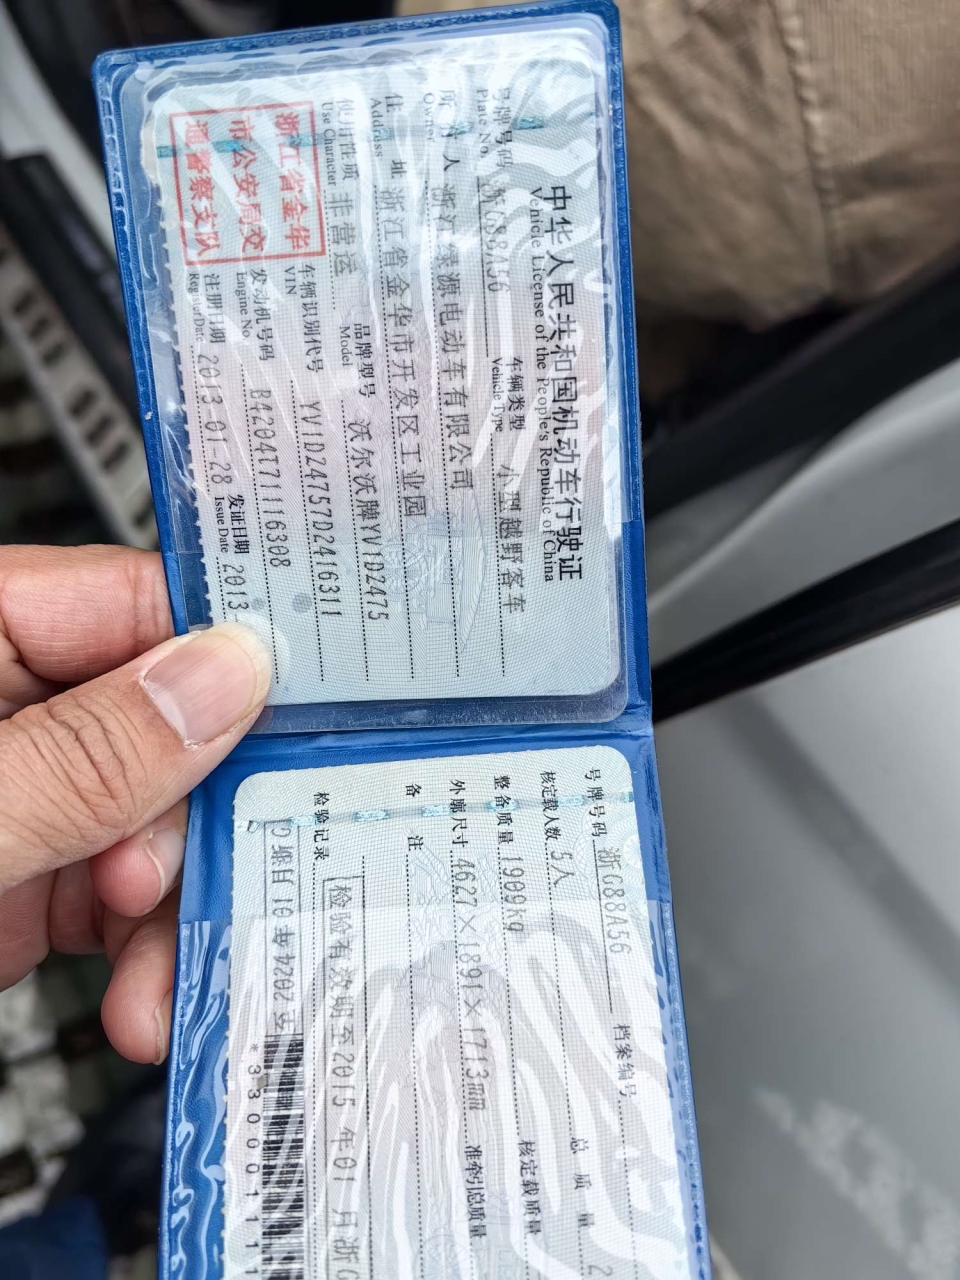 中华人民共和国机动车行驶证
Vehicle License of the People's Republic of China
号牌号码 浙G88A56 车辆类型 小型越野客车
Plate No. Vehicle Type
所有人 浙江绿源电动车有限公司
Owner
住址 浙江省金华市开发区工业园
Address
使用性质 非营运 品牌型号 沃尔沃牌YV1DZ475
Use Character Model
浙江省金华
市公安局交
通警察支队
车辆识别代号 YV1DZ4757D2416311
VIN
发动机号码 B4204T71116308
Engine No.
注册日期 2013-01-28 发证日期 2013
Register Date Issue Date
号牌号码 浙G88A56 档案编号
核定载人数 5人 总质量 2
整备质量 1909kg 核定载质量
外廓尺寸 4627×1891×1713mm 准牵引总质量
备注
检验记录 检验有效期至2015年01月浙G
至2024年01月
*330001111